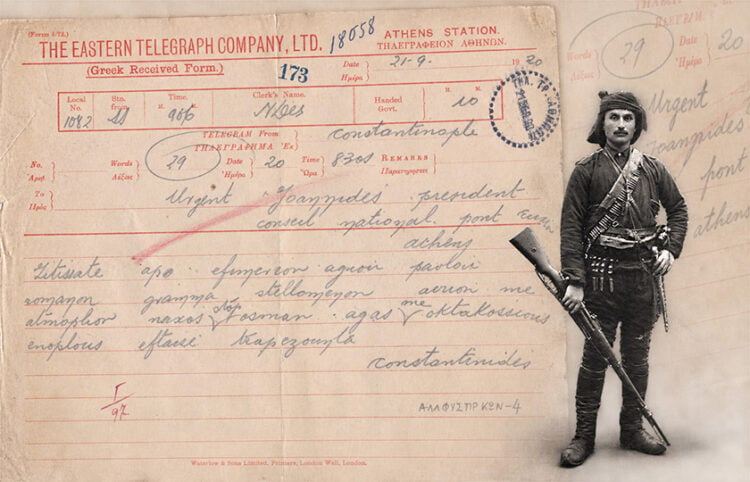 (Form 4/72.)
THE EASTERN TELEGRAPH COMPANY, LTD. 18058
(Greek Received Form.) 173
ATHENS STATION.
ΤΗΛΕΓΡΑΦΕΙΟΝ ΑΘΗΝΩΝ.
Date 21-9. 1920
Ἡμέρα
Local No. Stn. from Time. Clerk's Name. Handed Govt.
1082 986 10
TELEGRAM From constantinople
ΤΗΛΕΓΡΑΦΗΜΑ Ἐξ
No. Words 29 Date 20 Time 830s REMARKS
Ἀριθ. Λέξεις Ἡμέρα Ὥρα Παρατηρήσεις
To Urgent Joannides president
Πρὸς
conseil national pont Euxin
athens
Zitissate apo efimereon agiou pavlou
romanon gramma stellomenon avrion me
atmoplion naxos stop osman agas me oktakossious
enoplous eftassi trapezounta
constantinides
Γ/97
ΑΛΛΦΥΣΠΡ ΚΩΝ-4
Waterlow & Sons Limited, Printers, London Wall, London.
Words 29 20
Λέξεις Ἡμέρα
Urgent
Joannides
pont
athens